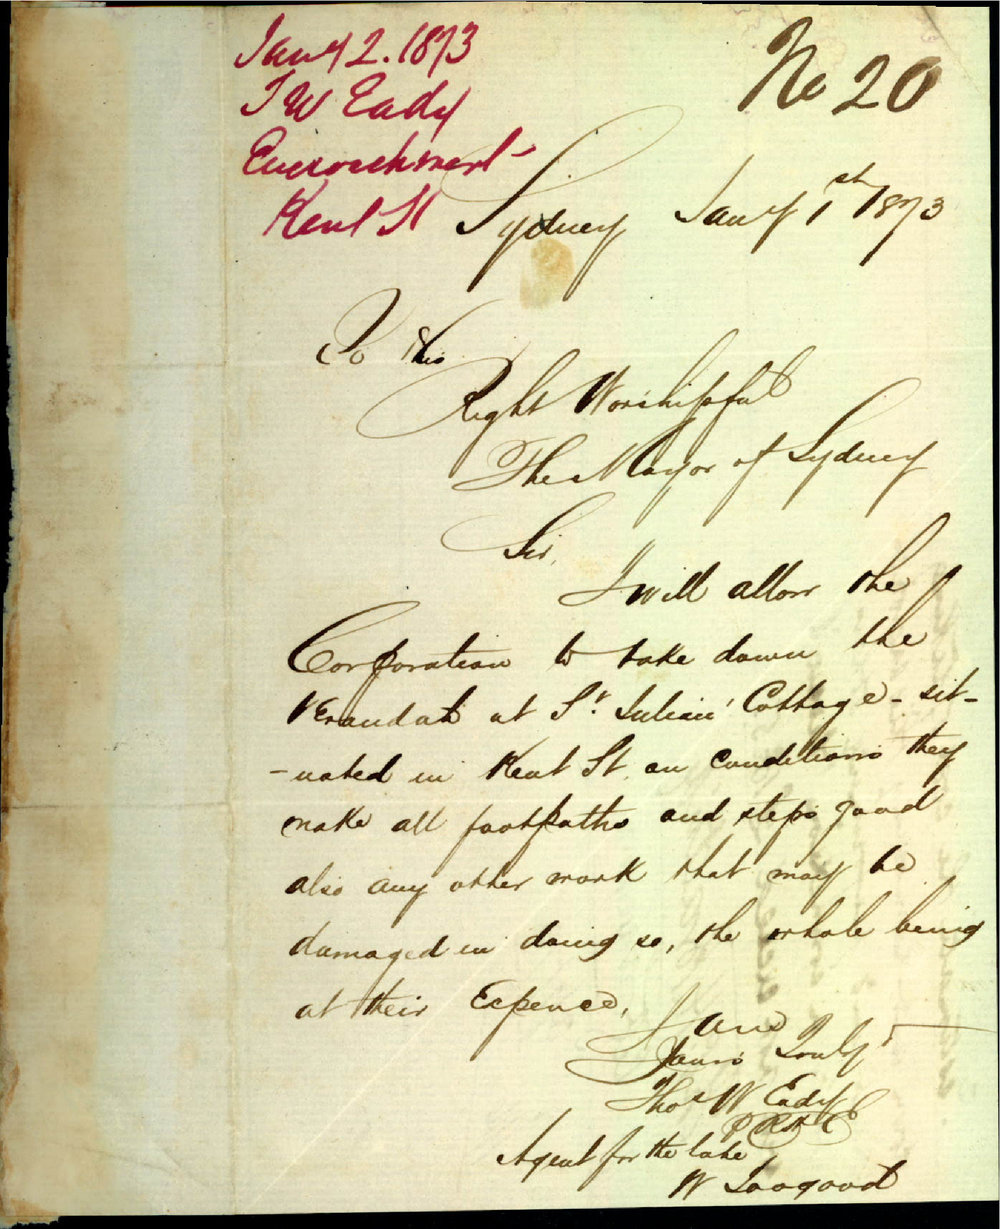 Jany 2. 1873
T W Eady
Encroachment
Kent St
No 20
Sydney Jany 1st 1873
To His
Right Worshipful
The Mayor of Sydney
Sir,
I will allow the
Corporation to take down the
Verandah at St. Julian' Cottage - sit-
-uated in Kent St. on conditions they
make all footpaths and steps good
also any other work that may be
damaged in doing so, the whole being
at their Expence,
I am
Yours Truly
Thos W Eady
Agent for the late
W Toogood